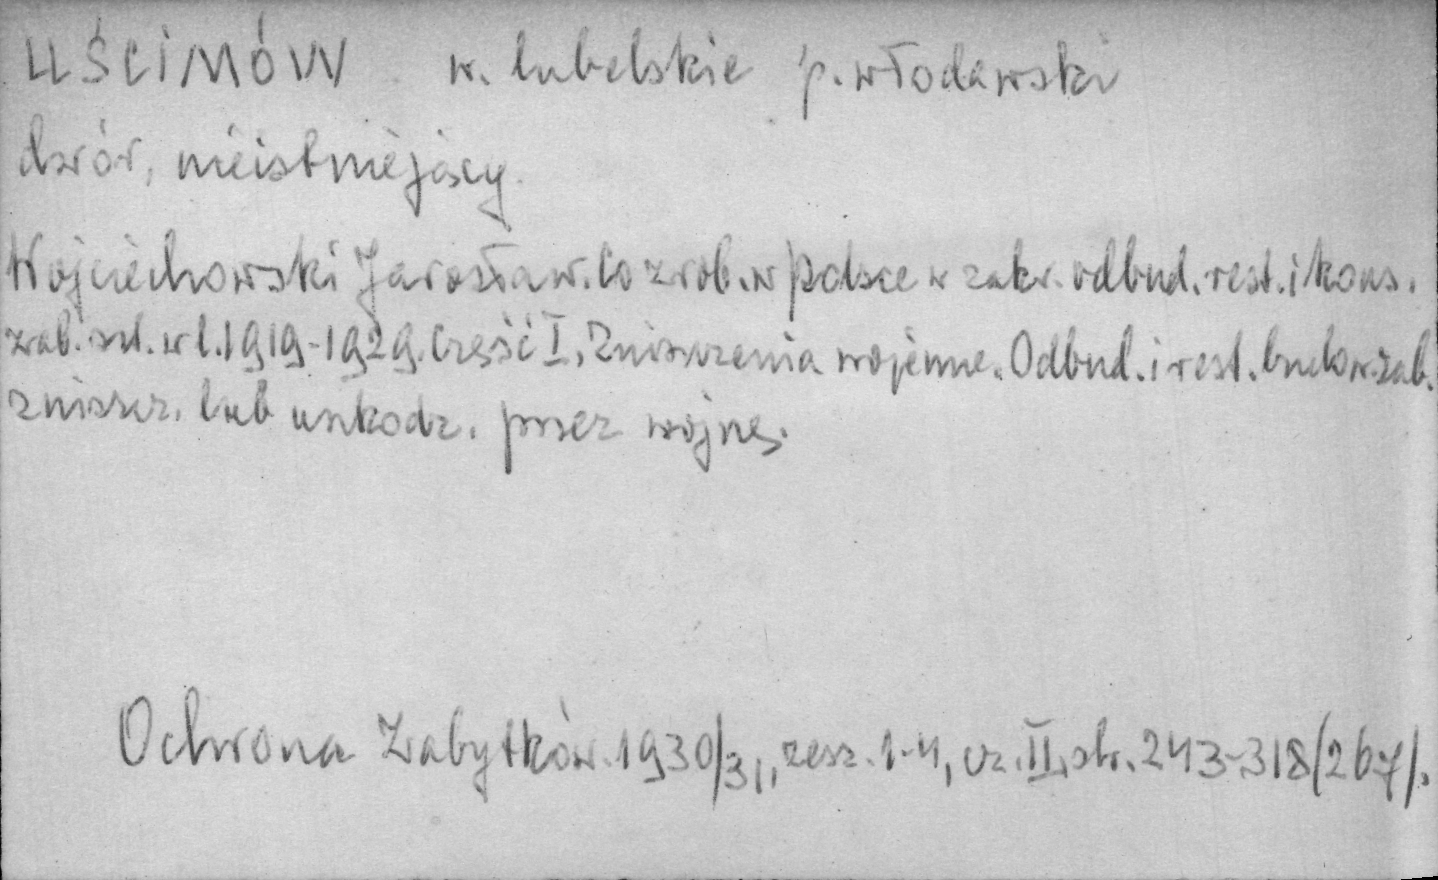 UŚCIMÓW w. lubelskie p. włodawski
dwór, nieistniejący.
Wojciechowski Jarosław. Co zrob. w Polsce w zakr. odbud. rest. i kons.
zab. szt. w l. 1919-1929. Część I, Zniszczenia wojenne. Odbud. i rest. budow. zab.
zniszcz. lub uszkodz. przez wojnę.
Ochrona Zabytków. 1930/31, zesz. 1-4, cz. II, str. 243-318/267/.